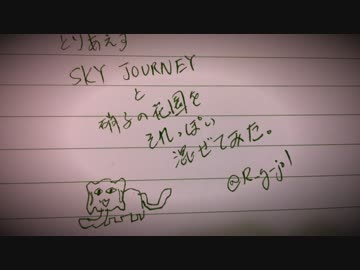 とりあえず
SKY JOURNEY
と
硝子の花園を
それっぽい
混ぜてみた。
@R-g-j1